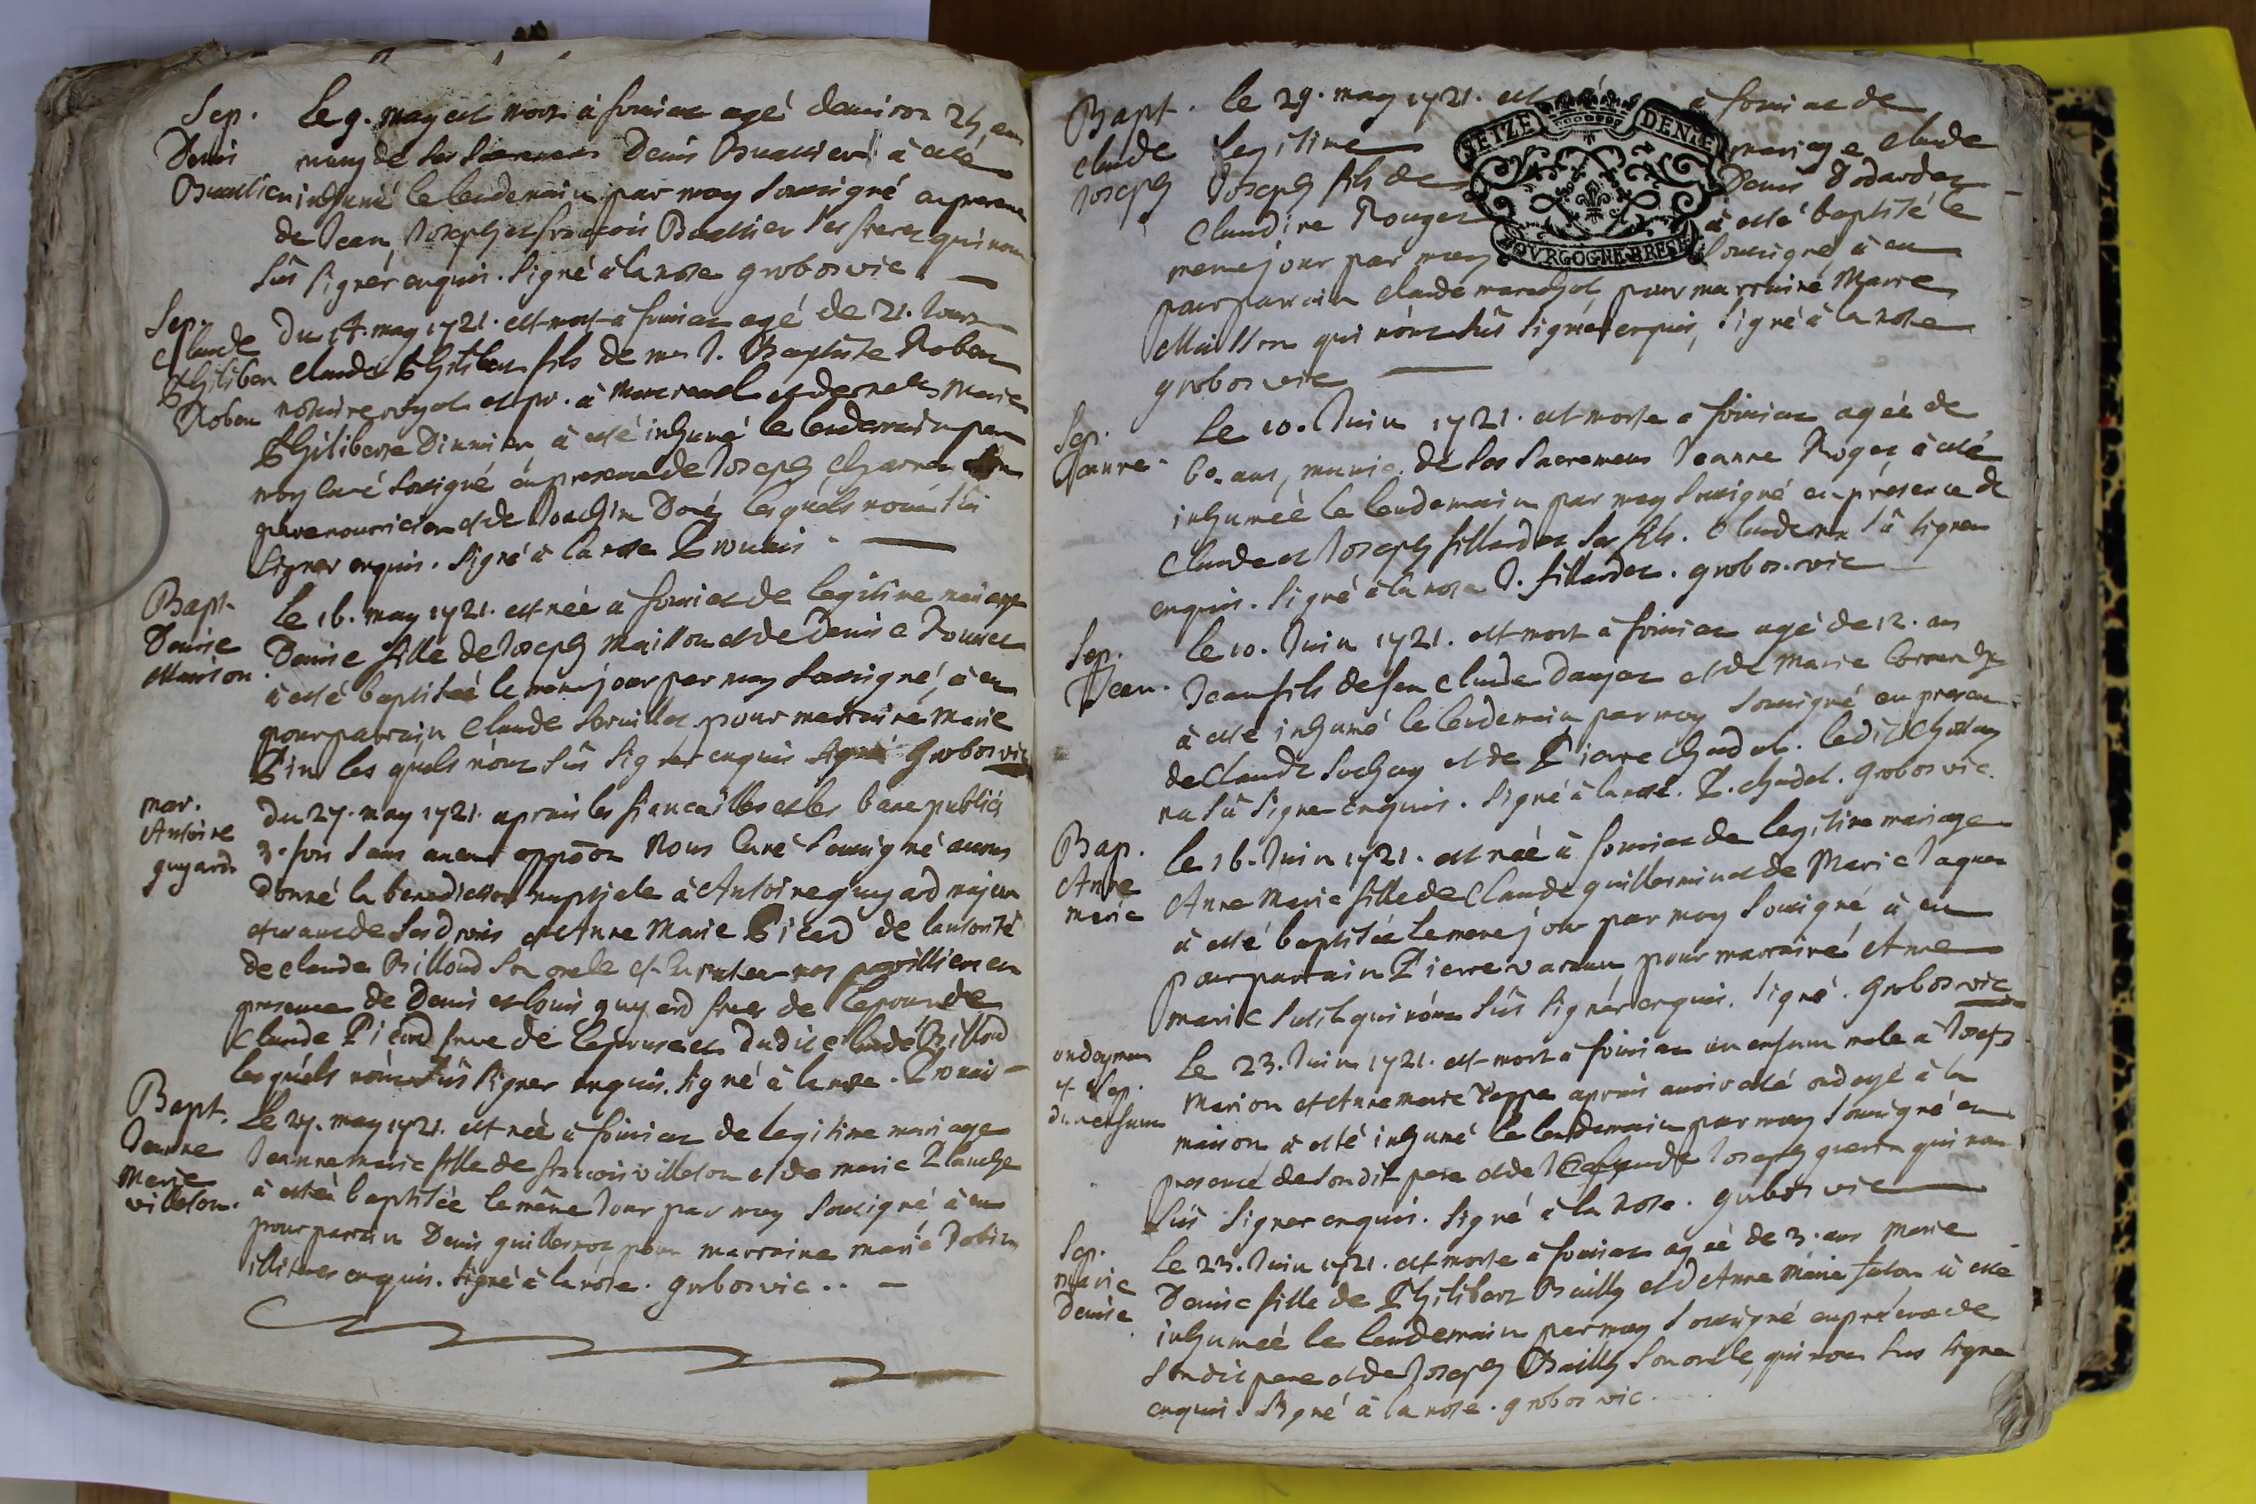 Sep.
Denis
Le 9. may est mort à foissiat agé denviron 24 ans
muny de ses sacremens Denis à esté
inhumé le lendemain par moy soussigné en presence
de Jean, Joseph et françois ses freres qui n'ont
sûs signer enquis. Signé à la nose grobosvie.
Sep.
Claude
Philibert
Robert
Du 14. may 1721. est mort à foissiat agé de 21. Jours
Claude Philibert fils de mr J. Baptiste Robert
notaire royal et pr. à et de Marie
Philiberte à esté inhumé le lendemain par
moy Curé soussigné en presence de Joseph
pere nourricier et de Joachin Doré lesquels n'ont sûs
signer enquis. Signé à la nose
Bapt.
Denise
Maison
Le 16. may 1721. est née à foissiat de legitime mariage
Denise fille de Joseph Maison et de Denise
à esté baptisée le meme jour par moy soussigné, à eu
pour parrain Claude pour marraine Marie
Pin lesquels n'ont sûs signer enquis signé Grobosvie
mar.
Antoine
guyard
Du 27. may 1721. aprais les fiancailles et les bans publiés
3. fois sans aucune oppoon Nous Curé Soussigné avons
donné la benediction nuptiale à Antoine guyard majeur
et usant de ses droits et Anne Marie Picard de l'autorité
de Claude Billoud son oncle et Curateur nos parroissiens en
presence de Denis et louis guyard freres de l'epoux de
Claude Picard frere de l'epouse et dudit Claude Billoud
lesquels n'ont sûs signer enquis. Signé à la nose.
Bapt.
Jeanne
Marie
villeton.
Le 27. may 1721. est née à foissiat de legitime mariage
Jeanne marie fille de francois villeton et de marie Planche
à esté baptisée le même Jour par moy soussigné à eu
pour parrain Denis guillermot pour marraine marie Robin
illiteres enquis. Signé à la nose. grobosvie..
Bapt.
Claude
Joseph
Le 29. may 1721. est né à foissiat de
legitime mariage Claude
Joseph fils de Denis
Claudine Rouget à esté baptisé le
meme jour par moy soussigné, à eu
pour parrain Claude marechal, pour marraine Marie
Maison qui n'ont sûs signer enquis, Signé à la nose
grobosvie
SEIZE DENIE
BOVRGOGNE BRESSE
Sep.
Jeanne.
Le 10. Juin 1721. est morte a foissiat agée de
60. ans, munie de ses sacremens Jeanne Roget, à esté
inhumée le lendemain par moy soussigné en presence de
Claude et Joseph fillardet ses fils. Claude n'a sû signer
enquis. Signé à la nose J. fillardet. grobosvie
Sep.
Jean.
Le 10. Juin 1721. est mort à foissiat agé de 12. ans
Jean fils de feu Claude et de Marie
à esté inhumé le lendemain par moy soussigné en presence
de Claude Sochay et de Pierre Chadel. ledit
na sû signer enquis. Signé à la nose. P. Chadel. Grobosvie.
Bap.
Anne
marie
Le 16. Juin 1721. est née à foissiat de legitime mariage
Anne Marie fille de Claude guillermin et de Marie Jaquet
à esté baptisée le meme jour par moy soussigné à eu
pour parrain Pierre pour marraine Anne
marie qui n'ont sûs signer enquis. Signé. Grobosvie
ondoyment
et Sep.
d'un enfant
Le 23. Juin 1721. est mort à foissiat un enfant male à Joseph
Marion et Anne marie aprais avoir esté ondoyé à la
maison à esté inhumé le lendemain par moy soussigné en
presence de son dit pere et de Joseph qui n'ont
sûs signer enquis. Signé à la nose. grobosvie
Sep.
Marie
Denise
Le 23. Juin 1721. est morte à foissiat agée de 3. ans Marie
Denise fille de Philibert Bailly et d'Anne Marie à esté
inhumée le lendemain par moy soussigné en présence de
son dit pere et de Joseph Bailly son oncle, qui n'ont sûs signer
enquis. Signé à la nose. grobosvie.